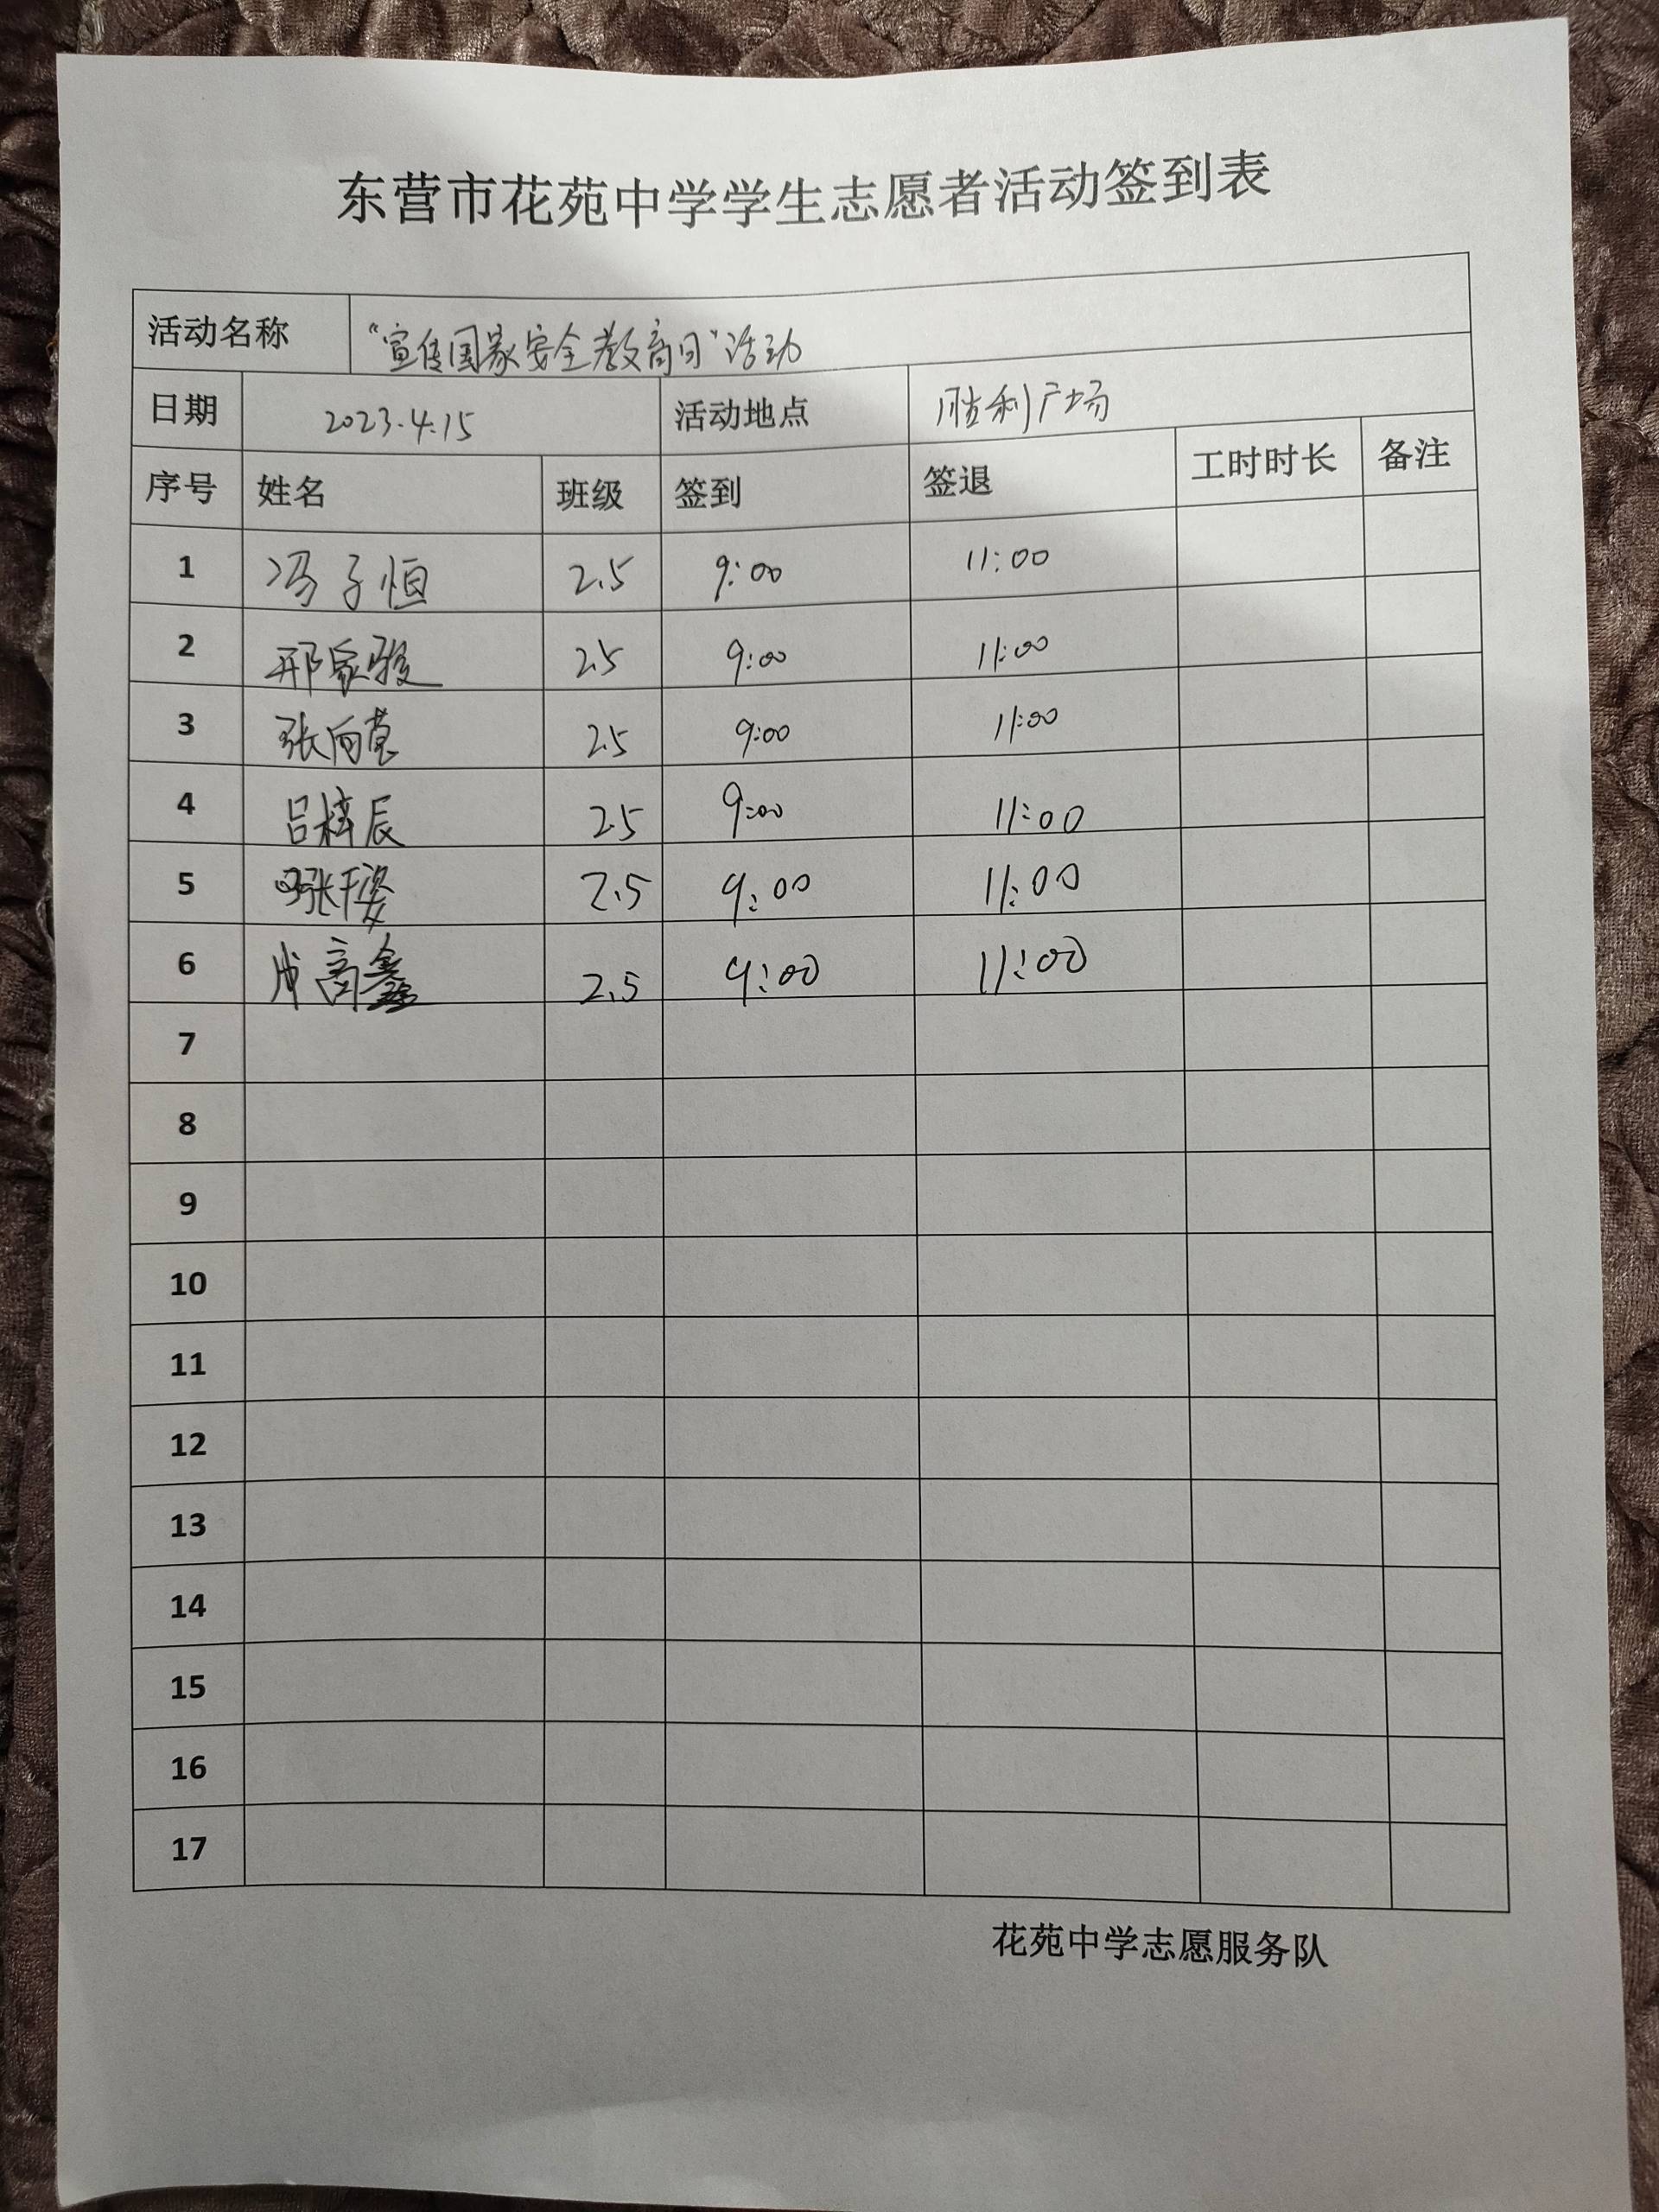 东营市花苑中学学生志愿者活动签到表
活动名称 “宣传国家安全教育日”活动
日期 2023.4.15 活动地点 胜利广场
序号 姓名 班级 签到 签退 工时时长 备注
1 冯子恒 2.5 9:00 11:00
2 邢家骏 2.5 9:00 11:00
3 张向 2.5 9:00 11:00
4 吕梓辰 2.5 9:00 11:00
5 张千姿 2.5 9:00 11:00
6 成高鑫 2.5 9:00 11:00
7
8
9
10
11
12
13
14
15
16
17
花苑中学志愿服务队